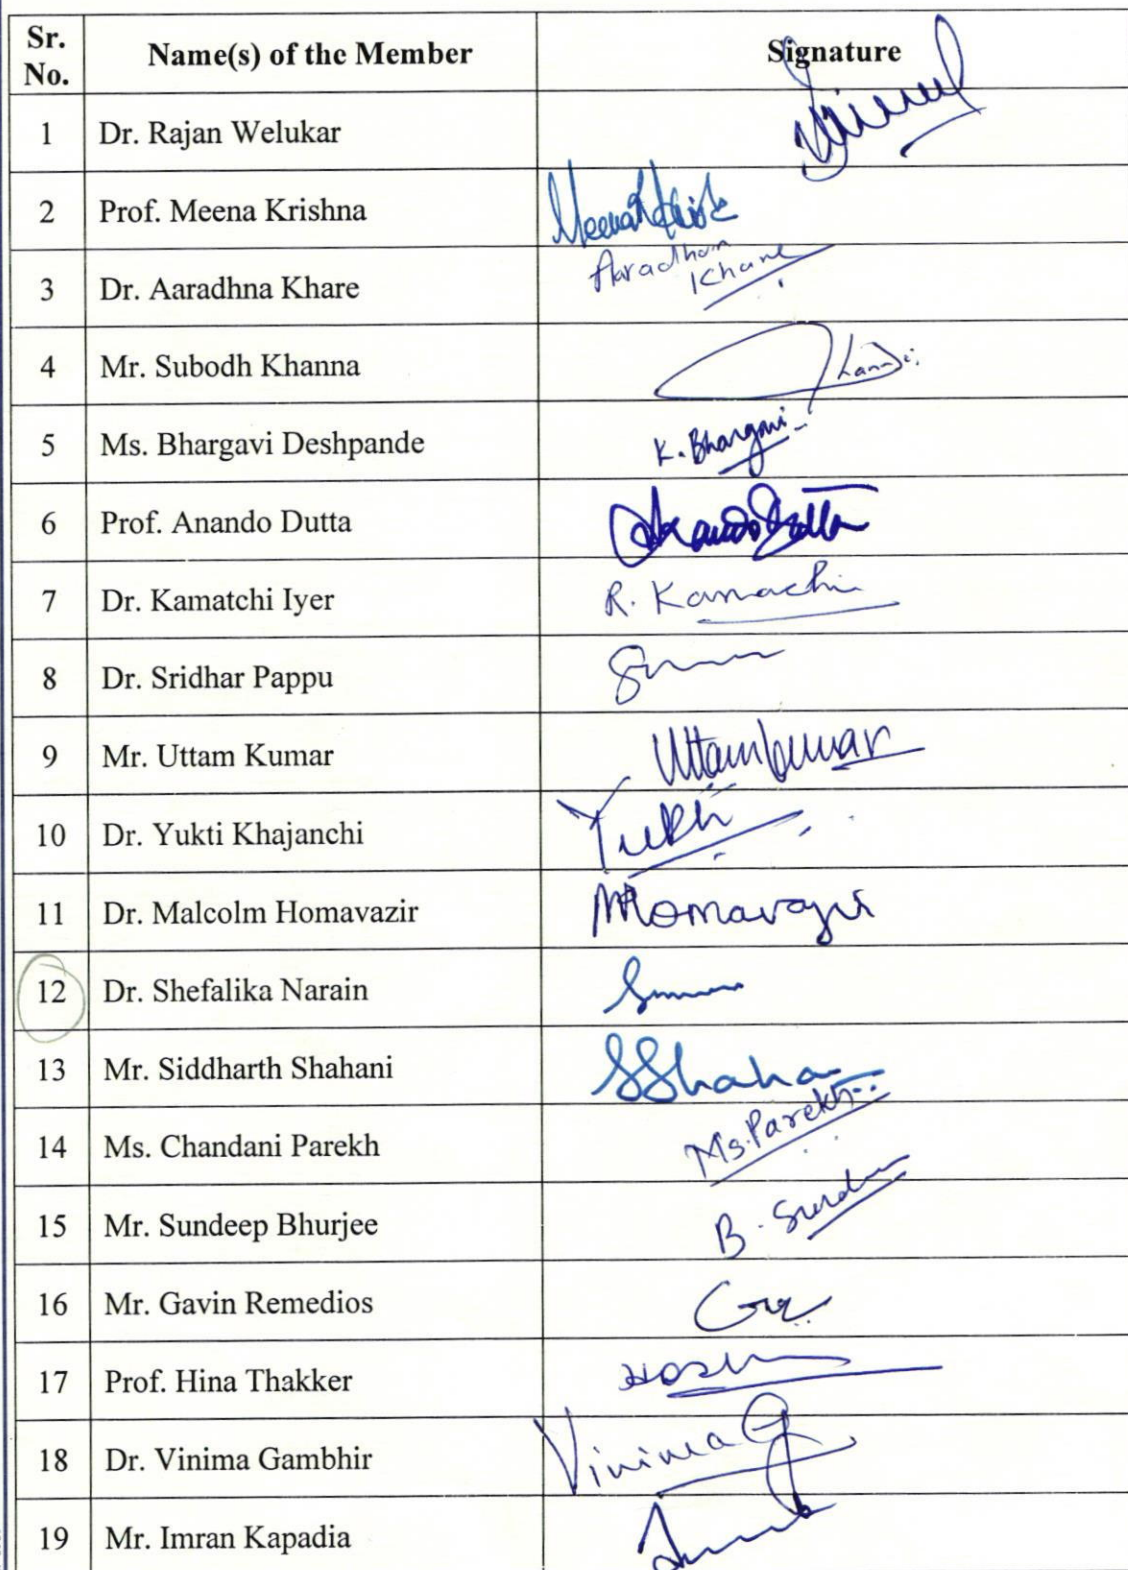 Sr. No. Name(s) of the Member Signature
1 Dr. Rajan Welukar
2 Prof. Meena Krishna
3 Dr. Aaradhna Khare Khare
4 Mr. Subodh Khanna
5 Ms. Bhargavi Deshpande K. Bhargavi
6 Prof. Anando Dutta Anando Dutta
7 Dr. Kamatchi Iyer R. Kamachi
8 Dr. Sridhar Pappu
9 Mr. Uttam Kumar Uttam kumar
10 Dr. Yukti Khajanchi
11 Dr. Malcolm Homavazir MHomavazir
12 Dr. Shefalika Narain
13 Mr. Siddharth Shahani
14 Ms. Chandani Parekh Ms. Parekh
15 Mr. Sundeep Bhurjee
16 Mr. Gavin Remedios
17 Prof. Hina Thakker
18 Dr. Vinima Gambhir Vinima G
19 Mr. Imran Kapadia